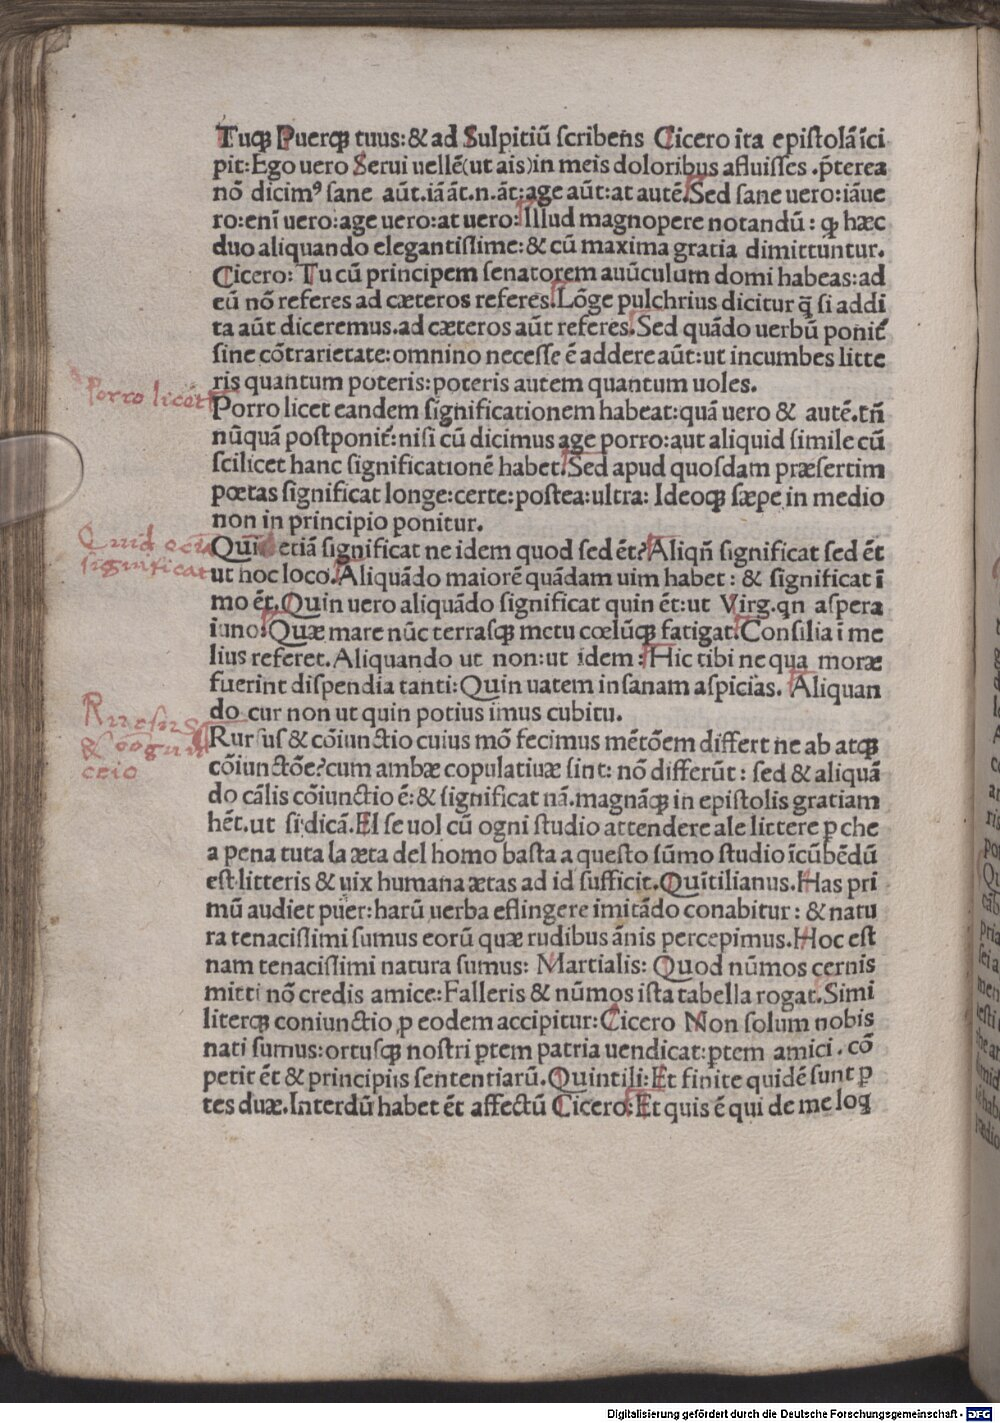 Tuqꝫ Puerqꝫ tuus:& ad Sulpitiū ſcribens Cicero ita epiſtolā īci
pit:Ego uero Serui uellē(ut ais)in meis doloribus afluiſſes .p̄terea
nō dicimꝰ ſane aūt.iā āt.n.āt:age aūt:at autē.Sed ſane uero:iāue
ro:enī uero:age uero:at uero:Illud magnopere notandū : qꝫ hæc
duo aliquando elegantiſſime:& cū maxima gratia dimittuntur.
Cicero: Tu cū principem ſenatorem auūculum domi habeas:ad
eū nō referes ad cæteros referes.Lōge pulchrius dicitur q̄ ſi addi
ta aūt diceremus.ad cæteros aūt referes.Sed quādo uerbū ponit̄
ſine cōtrarietate:omnino neceſſe ē addere aūt:ut incumbes litte
ris quantum poteris:poteris autem quantum uoles.
Porro licet
Porro licet eandem ſignificationem habeat:quā uero & autē.tñ
nūquā poſtponit̄:niſi cū dicimus age porro:aut aliquid ſimile cū
ſcilicet hanc ſignificationē habet.Sed apud quoſdam præſertim
pœtas ſignificat longe:certe:poſtea:ultra: Ideoqꝫ ſæpe in medio
non in principio ponitur.
Quid eciā
significat
Quī etiā ſignificat ne idem quod ſed ēt?Aliqñ ſignificat ſed ēt
ut hoc loco.Aliquādo maiorē quādam uim habet : & ſignificat ī
mo ēt.Quin uero aliquādo ſignificat quin ēt:ut Virg.qn aſpera
iuno:Quæ mare nūc terraſqꝫ metu cœlūqꝫ fatigat.Conſilia ī me
lius referet.Aliquando ut non:ut idem:Hic tibi ne qua moræ
fuerint diſpendia tanti:Quin uatem inſanam aſpicias. Aliquan
do cur non ut quin potius imus cubitu.
Rursus
Rurſus & cōiunctio cuius mō fecimus mētōem differt ne ab atqꝫ
cōiunctōe?cum ambæ copulatiuæ ſint: nō differūt : ſed & aliquā
do cālis cōiunctio ē:& ſignificat nā.magnāqꝫ in epiſtolis gratiam
hēt.ut ſi dicā.El ſe uol cū ogni ſtudio attendere ale littere ꝑ che
a pena tuta la æta del homo baſta a queſto ſūmo ſtudio īcūbēdū
eſt litteris & uix humana ætas ad id ſufficit.Quītilianus.Has pri
mū audiet puer:harū uerba effingere imitādo conabitur : & natu
ra tenaciſſimi ſumus eorū quæ rudibus ānis percepimus.Hoc eſt
nam tenaciſſimi natura ſumus: Martialis: Quod nūmos cernis
mitti nō credis amice:Falleris & nūmos iſta tabella rogat.Simi
literqꝫ coniunctio ꝓ eodem accipitur:Cicero Non ſolum nobis
nati ſumus:ortuſqꝫ noſtri ꝑtem patria uendicat:ꝑtem amici . cō
petit ēt & principiis ſententiarū.Quintili:Et finite quidē ſunt ꝑ
tes duæ.Interdū habet ēt affectū Cicero:Et quis ē qui de me loq
Digitalisierung gefördert durch die Deutsche Forschungsgemeinschaft - DFG